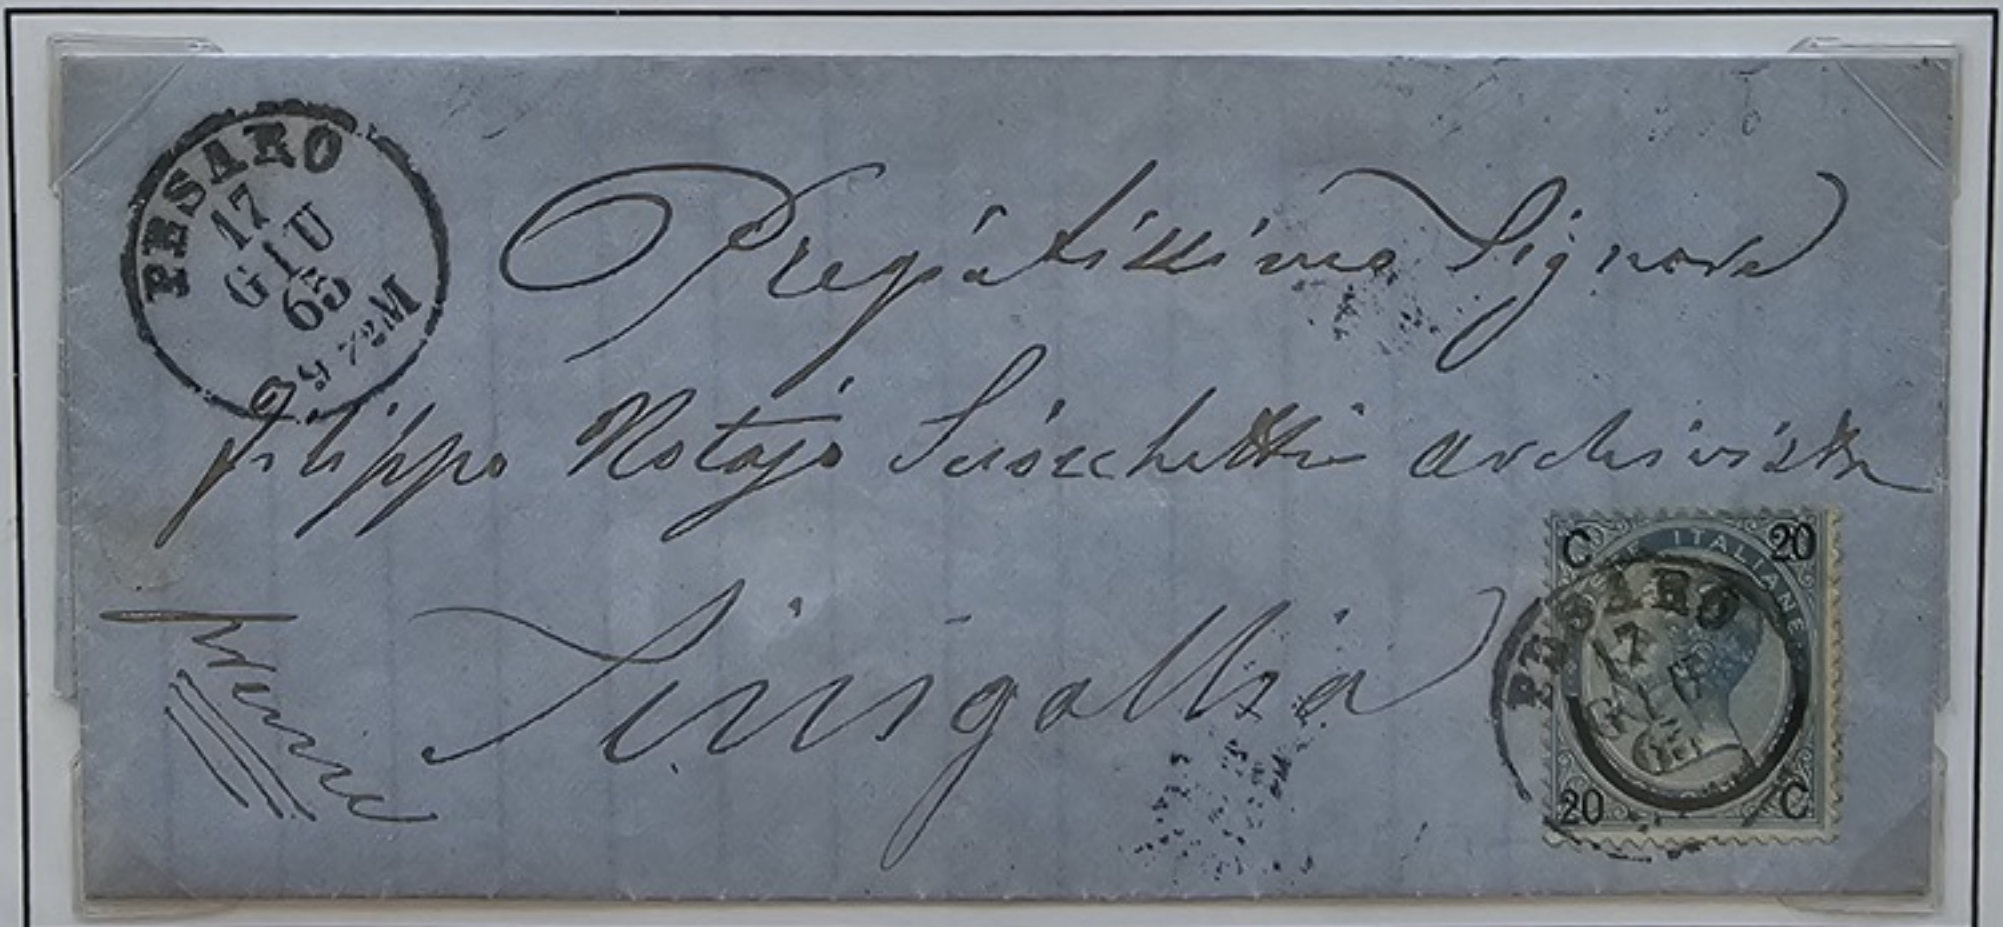 PESARO
17
GIU
65
9 72M
Pregiatissimo Signore
Filippo Notajo archivista
Sinigallia
C 20
ITALIANE
PESARO
17
GIU
65
20 C